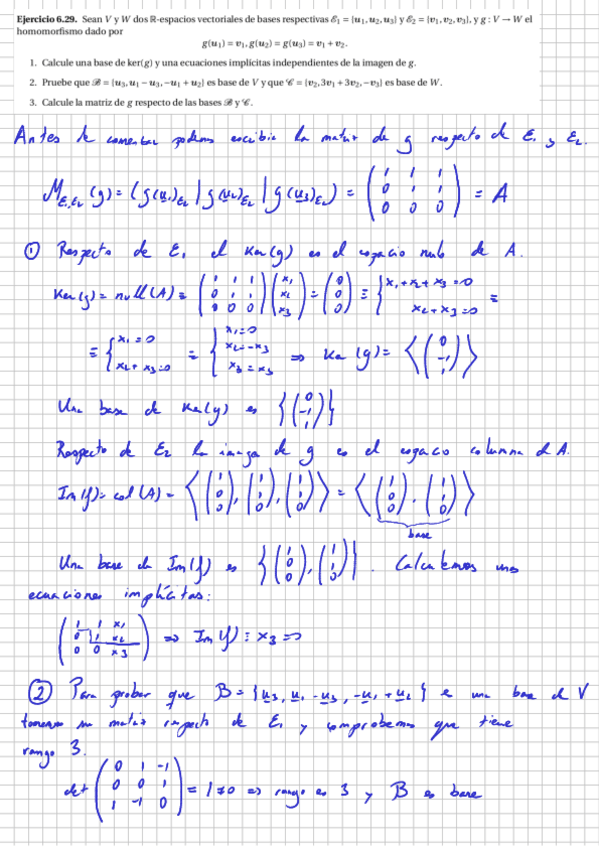 Ejercicio 6.29. Sean V y W dos ℝ-espacios vectoriales de bases respectivas ℰ₁ = {u₁, u₂, u₃} y ℰ₂ = {v₁, v₂, v₃}, y g : V → W el
homomorfismo dado por
g(u₁) = v₁, g(u₂) = g(u₃) = v₁ + v₂.
1. Calcule una base de ker(g) y una ecuaciones implícitas independientes de la imagen de g.
2. Pruebe que ℬ = {u₃, u₁ − u₃, −u₁ + u₂} es base de V y que 𝒞 = {v₂, 3v₁ + 3v₂, −v₃} es base de W.
3. Calcule la matriz de g respecto de las bases ℬ y 𝒞.
Antes de comenzar podemos escribir la matriz de g respecto de ℰ₁ y ℰ₂.
M_ℰ₁,ℰ₂(g) = (g(u₁)_ℰ₂ | g(u₂)_ℰ₂ | g(u₃)_ℰ₂) = (1 1 1; 0 1 1; 0 0 0) = A
① Respecto de ℰ₁ el Ker(g) es el espacio nulo de A.
Ker(g) = null(A) ≡ (1 1 1; 0 1 1; 0 0 0)(x₁; x₂; x₃) = (0; 0; 0) ≡ { x₁ + x₂ + x₃ = 0; x₂ + x₃ = 0 ≡
≡ { x₁ = 0; x₂ + x₃ = 0 ≡ { x₁ = 0; x₂ = −x₃; x₃ = x₃ ⇒ Ker(g) = ⟨(0; −1; 1)⟩
Una base de Ker(g) es {(0; −1; 1)}
Respecto de ℰ₂ la imagen de g es el espacio columna de A.
Im(f) = col(A) = ⟨(1; 0; 0), (1; 1; 0), (1; 1; 0)⟩ = ⟨(1; 0; 0), (1; 1; 0)⟩
base
Una base de Im(f) es {(1; 0; 0), (1; 1; 0)}. Calculemos unas
ecuaciones implícitas:
(1 1 x₁; 0 1 x₂; 0 0 x₃) ⇒ Im(f) ≡ x₃ = 0
② Para probar que B = {u₃, u₁ − u₃, −u₁ + u₂} e una base de V
tomemos su matriz respecto de ℰ₁ y comprobemos que tiene
rango 3.
det (0 1 −1; 0 0 1; 1 −1 0) = 1 ≠ 0 ⇒ rango es 3 y B es base